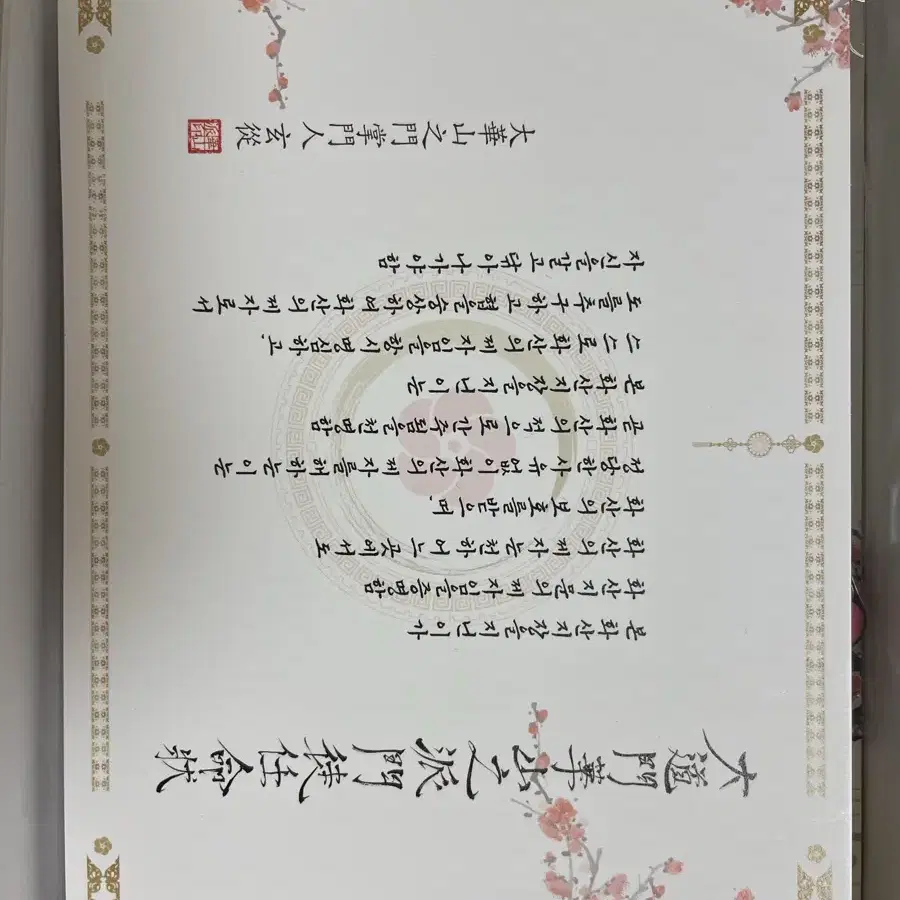 大道門華山之派門徒任命狀
본 화산지장을 지닌 이가
화산지문의 제자임을 증명함
화산의 제자는 천하 어느 곳에서도
화산의 보호를 받으며,
정당한 사유 없이 화산의 제자를 해하는 이는
곧 화산의 적으로 간주됨을 천명함
본 화산지장을 지닌 이는
스스로 화산의 제자임을 항시 명심하고,
도를 추구하고 협을 숭상하며 화산의 제자로서
자신을 갈고 닦아 나가야 함
大華山之門掌門人玄從